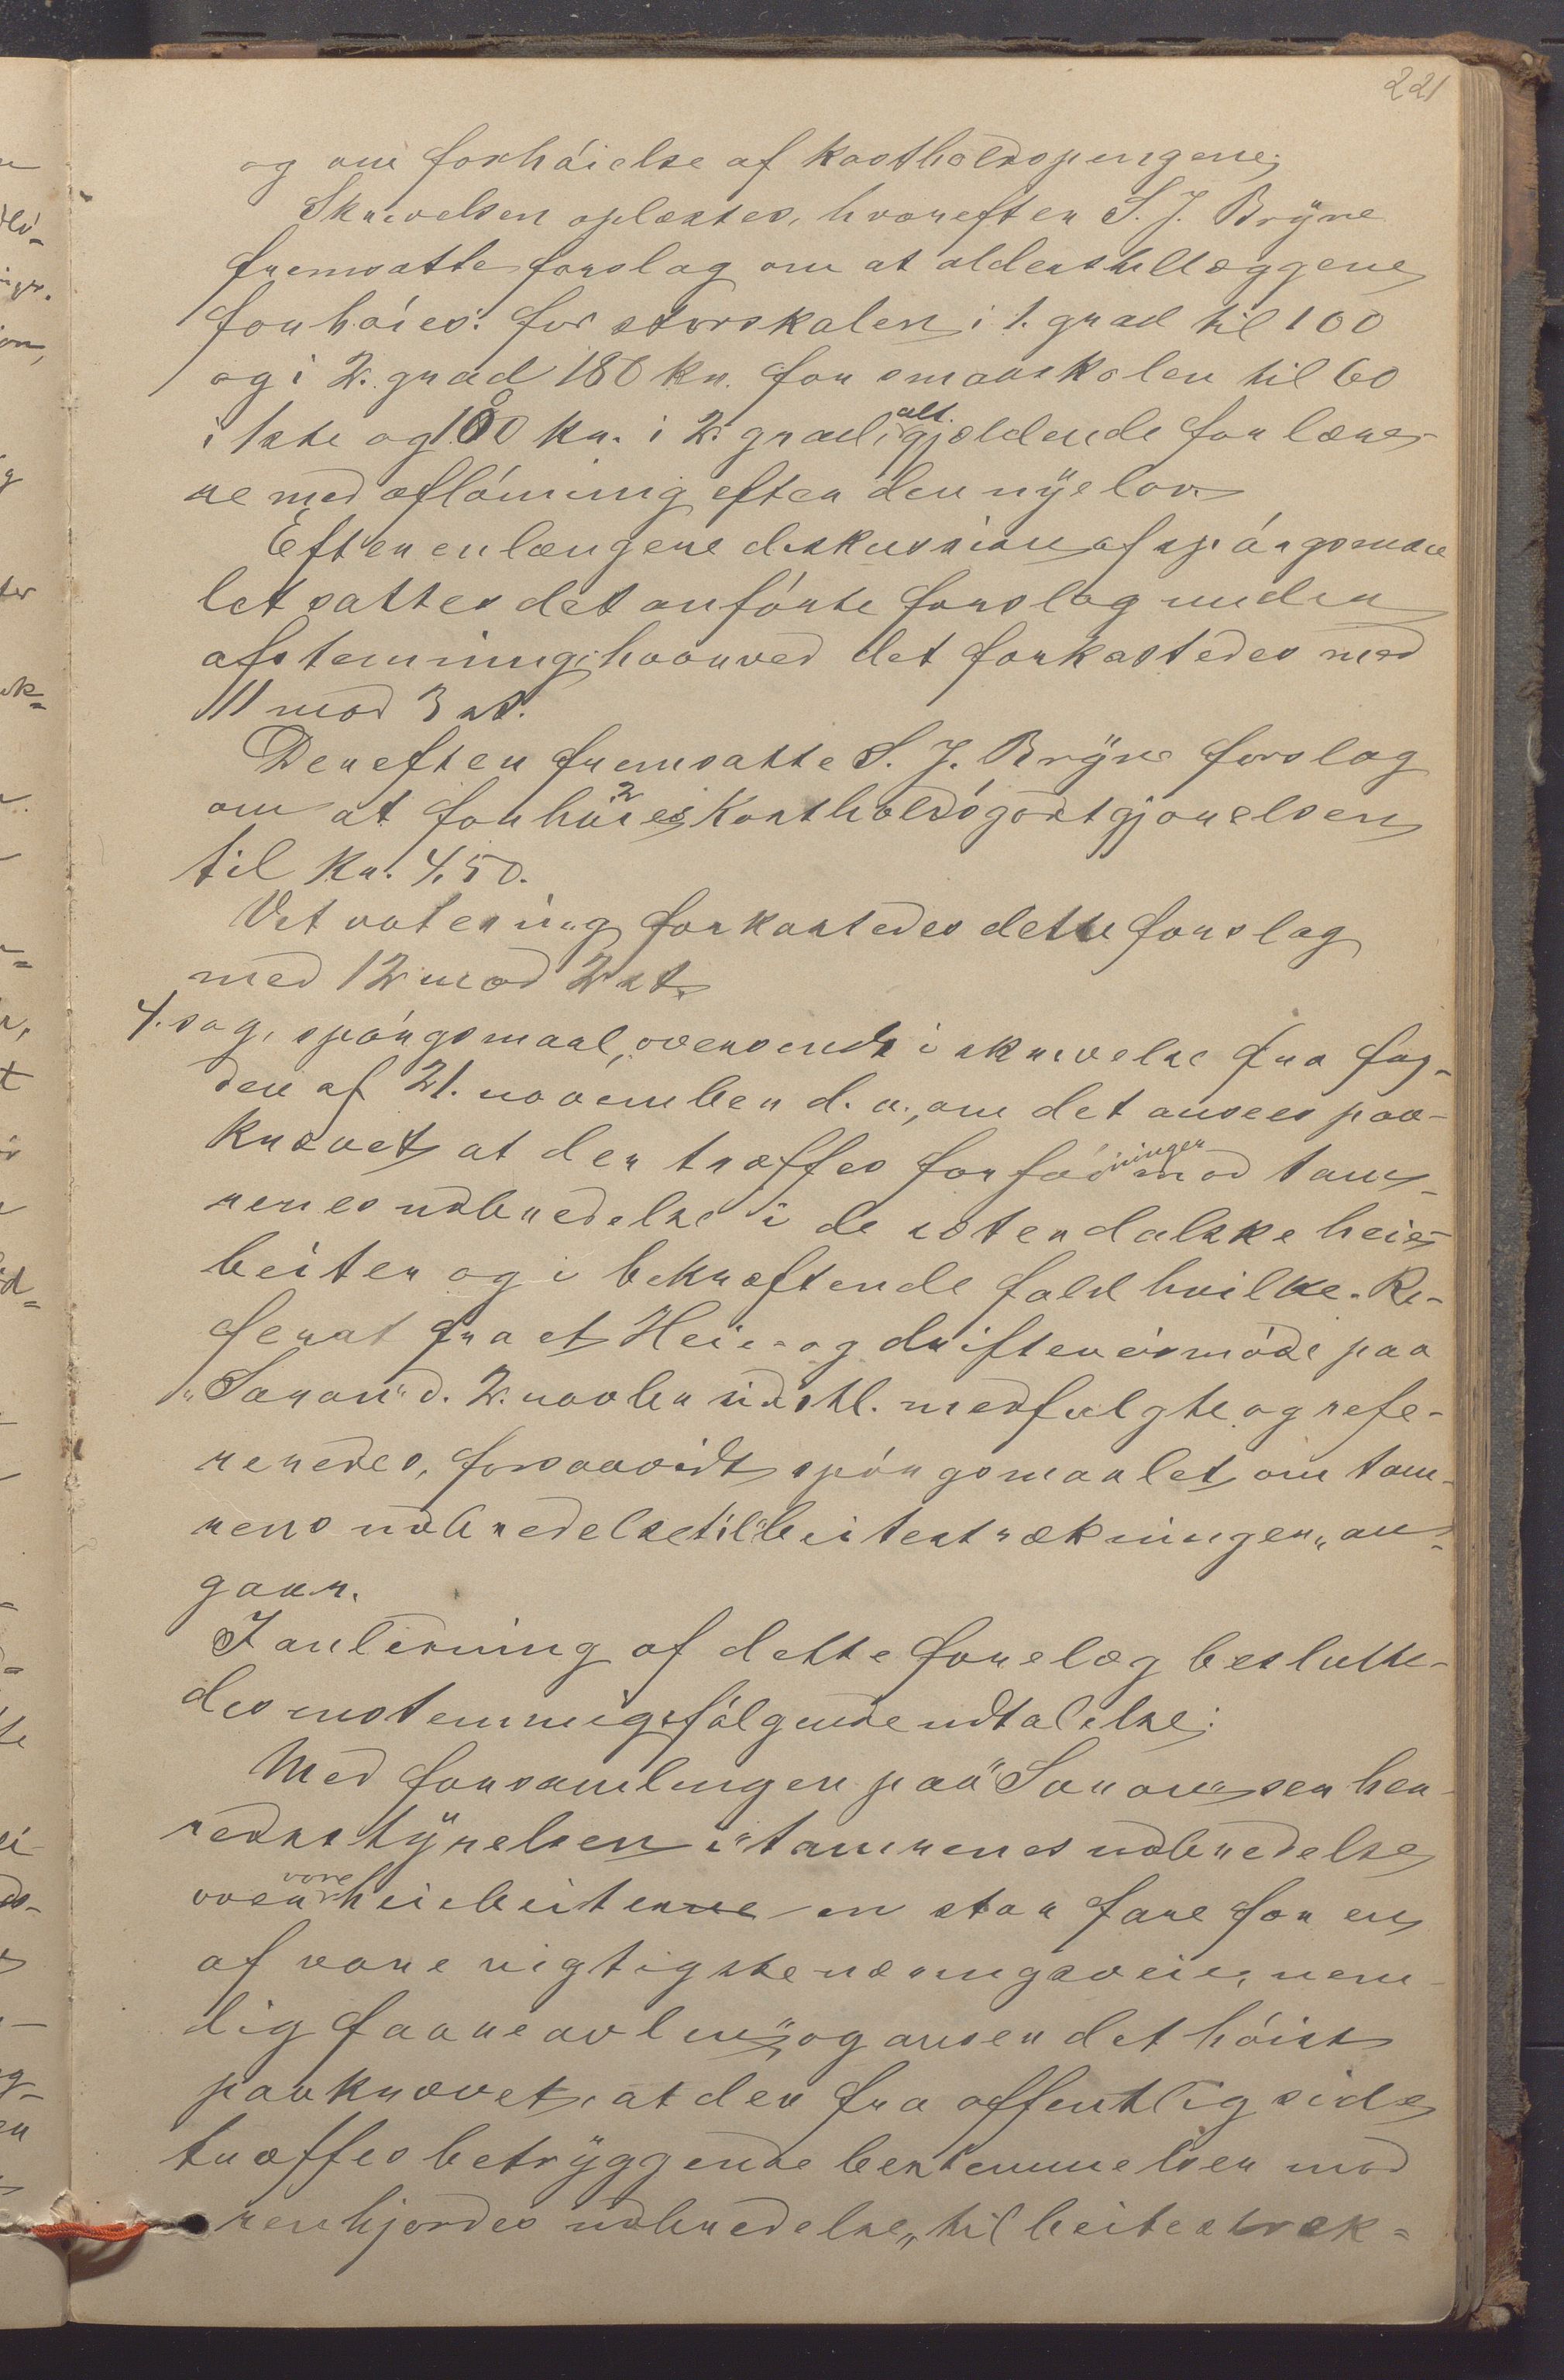 221
og om forhøielse af kostholdspengene;
Skrivelsen oplæstes, hvorefter S. J. Bryne
fremsatte forslag om at alderstillæggene
forhøies: for storskolen i 1. grad til 100
og i 2. grad 180 kr. for smaaskolen til 60
i 1ste og 100 kr. i 2. grad, alt gjældende for lærer-
ne med aflønning efter den nye lov.
Efter en længere diskussion af spørgsmaa
let sattes det anførte forslag under
afstemning, hvorved det forkastedes med
11 mod 3 st.
Derefter fremsatte S. J. Bryne forslag
om at forhøies Kostholdsgodtgjørelsen
til kr. 4,50.
Vet votering forkastedes dette forslag
med 12 mod 2 st.
4. sag, spørgsmaal, oversendt i skrivelse fra fog-
den af 21. november d. a., om det ansees paa-
krævet, at der træffes forføininger mod tam-
renes udbredelse i de østerdalske heie-
beiter og i bekræftende fald hvilke. Re-
ferat fra et Heie- og drifteeiermøde paa
"Sanan" d. 2. novbr sidstl. medfulgte og refe-
reredes, forsaavidt spørgsmaalet om tam-
rens udbredelse til "beitestrækninger" an-
gaar.
I anledning af dette forelæg beslutte-
des enstemmig følgende udtalelse:
Med forsamlingen paa "Sanan" ser her-
redsstyrelsen i "tamrenes udbredelse
over vore heiebeiter en stor fare for en
af vore vigtigste næringsveie, nem-
lig faareavlen", og anser det høist
paakrævet, at der fra offentlig side
træffes betryggende bestemmelser mod
renhjordes udbredelse "til beitestræk-